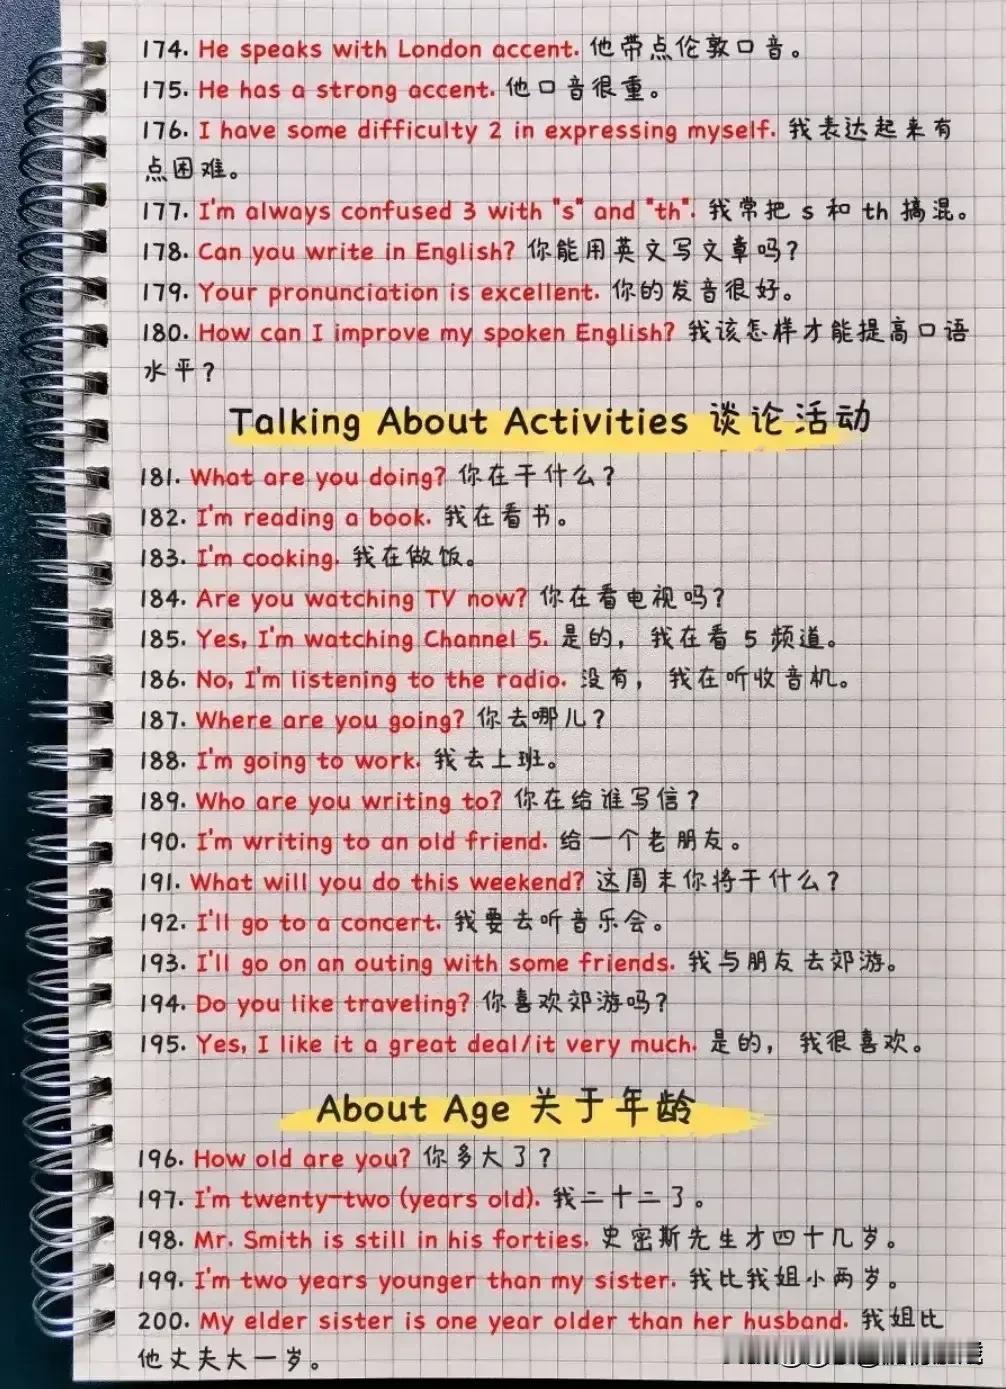 174. He speaks with London accent. 他带点伦敦口音。
175. He has a strong accent. 他口音很重。
176. I have some difficulty 2 in expressing myself. 我表达起来有
点困难。
177. I'm always confused 3 with "s" and "th". 我常把 s 和 th 搞混。
178. Can you write in English? 你能用英文写文章吗？
179. Your pronunciation is excellent. 你的发音很好。
180. How can I improve my spoken English? 我该怎样才能提高口语
水平？
Talking About Activities 谈论活动
181. What are you doing? 你在干什么？
182. I'm reading a book. 我在看书。
183. I'm cooking. 我在做饭。
184. Are you watching TV now? 你在看电视吗？
185. Yes, I'm watching Channel 5. 是的， 我在看 5 频道。
186. No, I'm listening to the radio. 没有， 我在听收音机。
187. Where are you going? 你去哪儿？
188. I'm going to work. 我去上班。
189. Who are you writing to? 你在给谁写信？
190. I'm writing to an old friend. 给一个老朋友。
191. What will you do this weekend? 这周末你将干什么？
192. I'll go to a concert. 我要去听音乐会。
193. I'll go on an outing with some friends. 我与朋友去郊游。
194. Do you like traveling? 你喜欢郊游吗？
195. Yes, I like it a great deal/it very much. 是的， 我很喜欢。
About Age 关于年龄
196. How old are you? 你多大了？
197. I'm twenty-two (years old). 我二十二了。
198. Mr. Smith is still in his forties. 史密斯先生才四十几岁。
199. I'm two years younger than my sister. 我比我姐小两岁。
200. My elder sister is one year older than her husband. 我姐比
他丈夫大一岁。